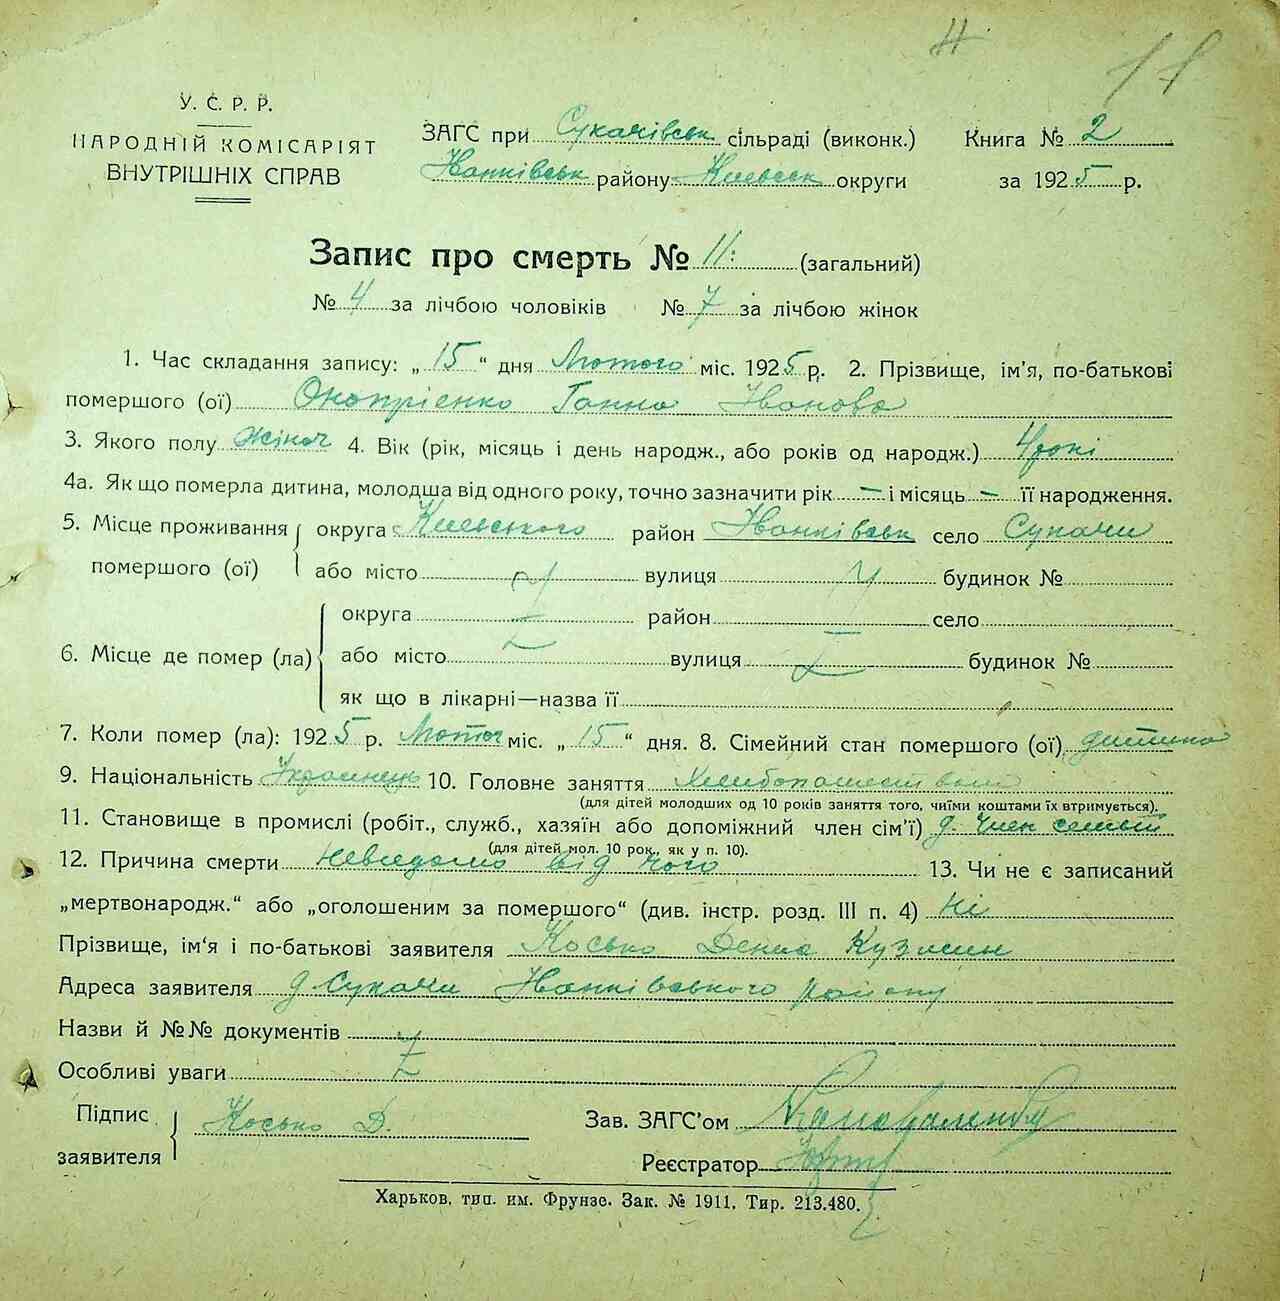 11
У. С. Р. Р.
НАРОДНІЙ КОМІСАРІЯТ
ВНУТРІШНІХ СПРАВ
ЗАГС при Сукачівськ сільраді (виконк.)
Іванківськ району Киевськ округи
Книга № 2
за 1925 р.
Запис про смерть № 11: (загальний)
№ 4 за лічбою чоловіків № 7 за лічбою жінок
1. Час складання запису: „15“ дня Лютого міс. 1925 р. 2. Прізвище, ім'я, по-батькові
помершого (ої) Онопрієнко Ганна Іванова
3. Якого полу жіноч 4. Вік (рік, місяць і день народж., або років од народж.) 4 рокі
4а. Як що померла дитина, молодша від одного року, точно зазначити рік — і місяць — її народження.
5. Місце проживання помершого (ої) округа Киевського район Іванківськ село Сукачи
або місто вулиця будинок №
6. Місце де помер (ла) округа район село
або місто вулиця будинок №
як що в лікарні—назва її
7. Коли помер (ла): 1925 р. Лютоґ міс. „15“ дня. 8. Сімейний стан помершого (ої) дитина
9. Національність Украинець 10. Головне заняття
(для дітей молодших од 10 років заняття того, чиїми коштами їх втримується).
11. Становище в промислі (робіт., служб., хазяїн або допоміжний член сім'ї) д. член семьи
(для дітей мол. 10 рок., як у п. 10).
12. Причина смерти Невидомо від чого 13. Чи не є записаний
„мертвонародж.“ або „оголошеним за помершого“ (див. інстр. розд. III п. 4) Ні
Прізвище, ім'я і по-батькові заявителя Косько Дениа Кузьмин
Адреса заявителя д. Сукачи Іванківського району
Назви й №№ документів
Особливі уваги
Підпис заявителя Косько Д.
Зав. ЗАГС'ом
Реєстратор
Харьков, тип. им. Фрунзе. Зак. № 1911, Тир. 213.480.